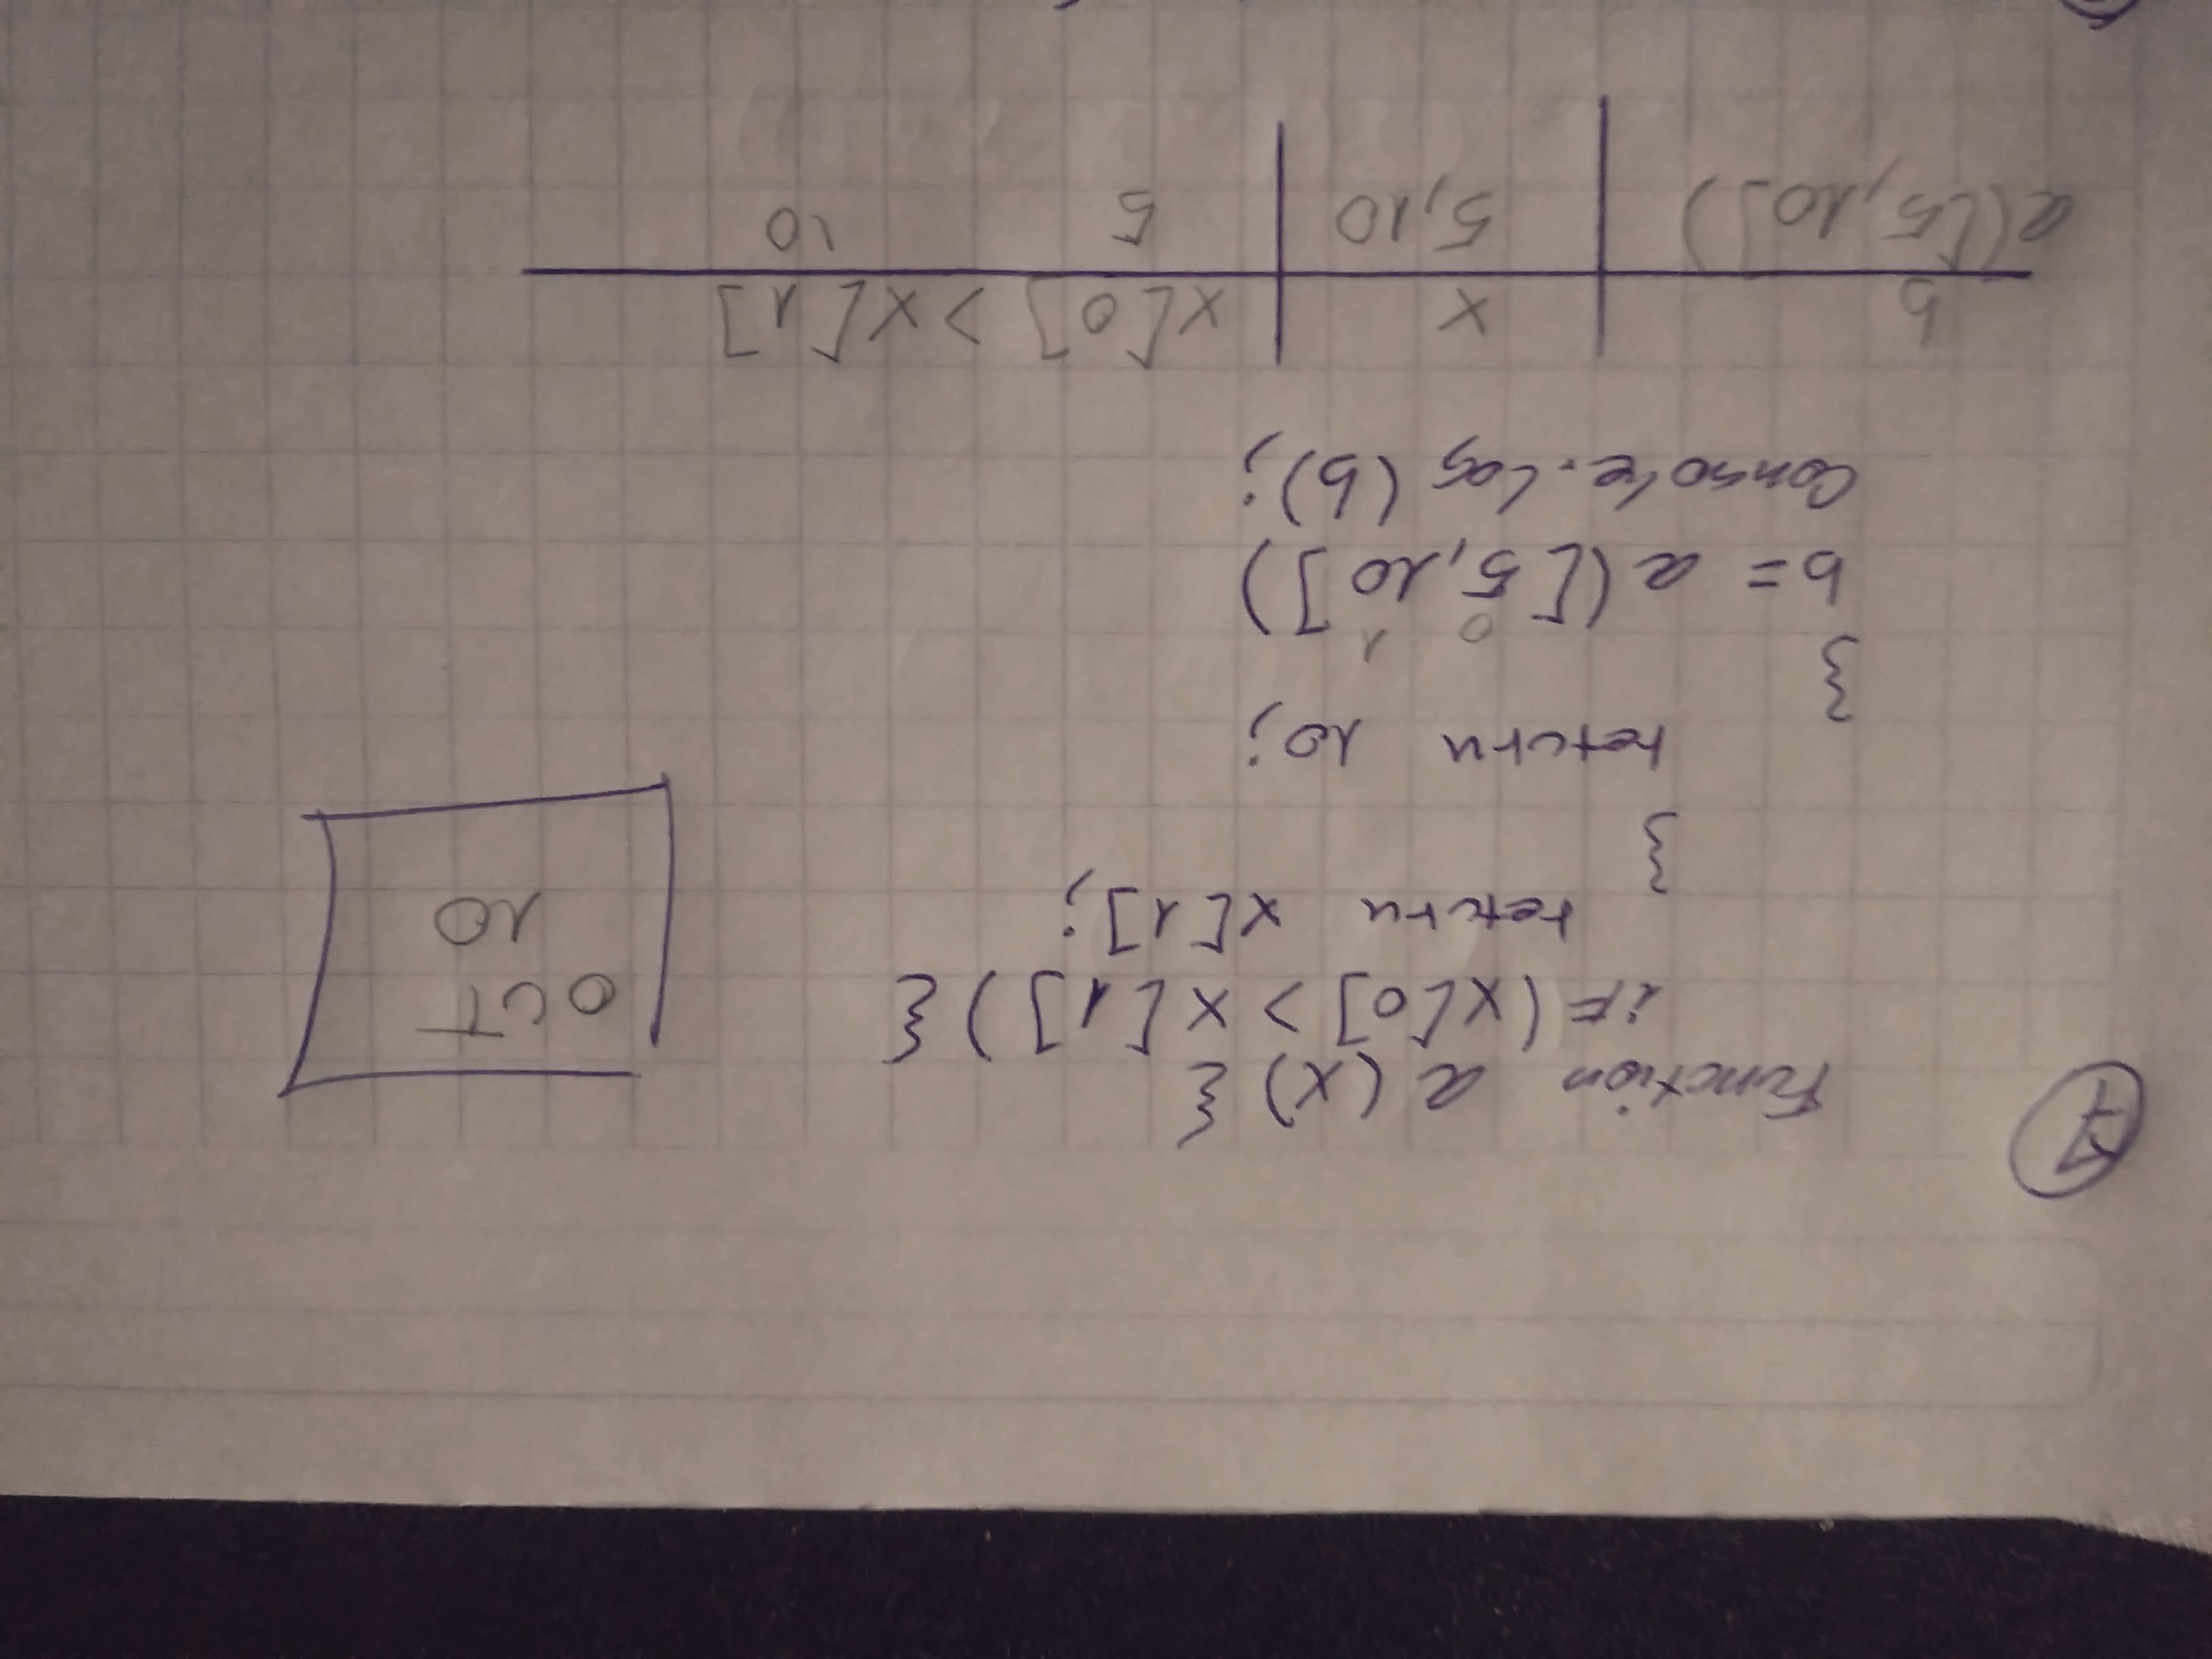 7
Function a(x) {
if (x[0] > x[1]) {
return x[1];
}
return 10;
}
0 1
b = a([5,10])
Console.log(b);
OUT
10
b x x[0] > x[1]
a([5,10]) 5,10 5 10